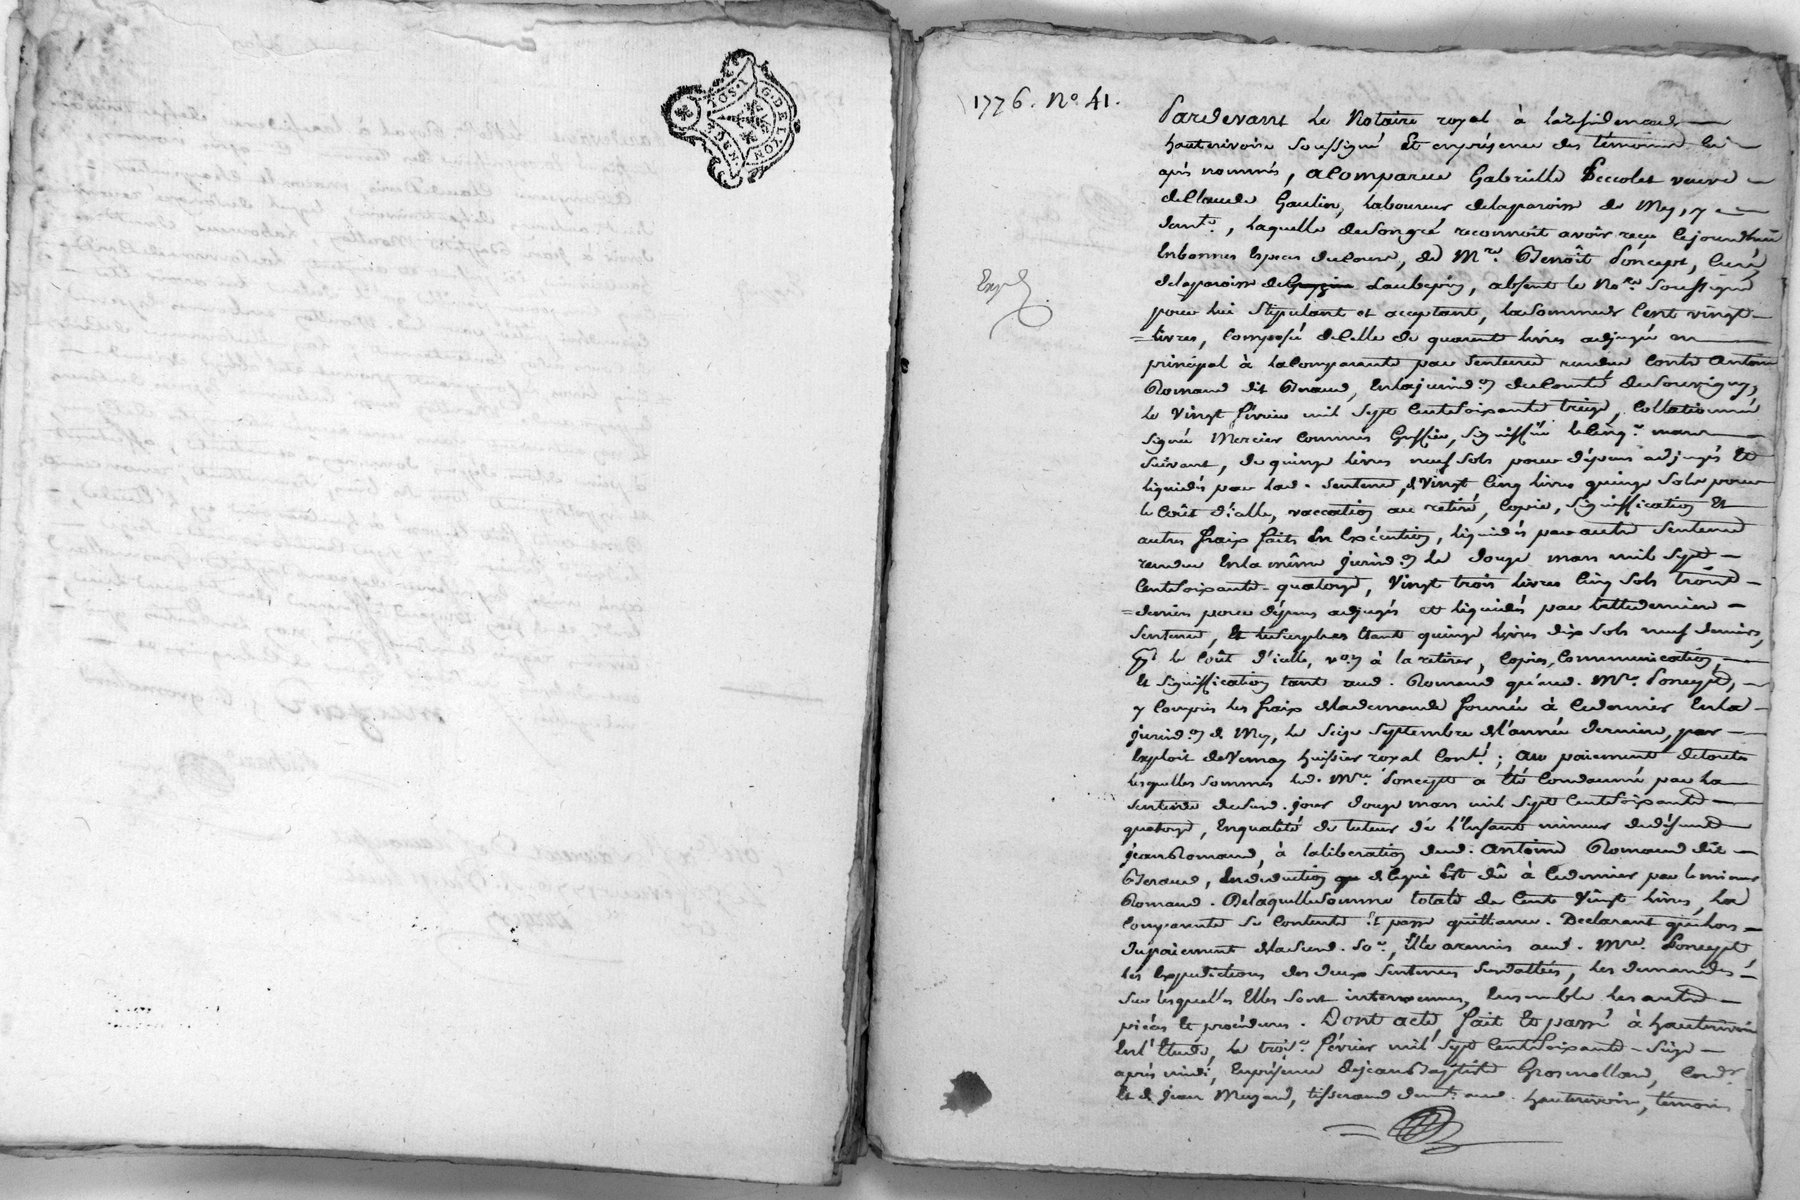 G. DE LYON
1776. N.o 41.
Expé
Pardevant Le Notaire royal à la résidence de
hauterivoire soussigné Et en présence des témoins ci
après nommés, a Comparue Gabrielle Peccolet veuve
de Claude Gaulier, Laboureur de la paroisse de Mey, y
dem.te, Laquelle de son gré reconnoit avoir reçu cejourd'hui
En bonnes Espèces du Cours, de M.re Benoît Poncept, Curé
de la paroisse de Laubepin, absent le No.re soussigné
pour lui stipulant et acceptant, la somme de Cent vingt
livres, Composée de Celle de quarente livres adjugée en
principal à la Comparante par sentence rendue Contre Antoine
Romand dit Beraud, En la jurid.on du Comté de Souvigny,
le Vingt février mil sept Cent soixante treize, Collationnée
signée Mercier Commis Greffier, signiffiée le Cinq.e mars
suivant, de quinze livres neuf sols pour dépens adjugés Et
liquidés par lad. sentence, de Vingt Cinq livres quinze sols pour
le Coût d'icelle, vaccation au retiré, Copie, signiffication Et
autres fraix faits En Exécution, liquidés par autre sentence
rendue En la même jurid.on le douze mars mil sept
Cent soixante-quatorze, Vingt trois livres Cinq sols trois
deniers pour dépens adjugés et liquidés par Cette derniere
sentence, Et le surplus Etant quinze livres dix sols neuf deniers,
p.r le Coût d'icelle, v.on à la retirer, Copies, Communication,
Et signiffication tant aud. Romand qu'aud. M.re Poncept,
y Compris les fraix de la demande formée à Ce dernier En la
jurid.on de Mey, le seize septembre de l'année derniere, par
Exploit de Vernay huissier royal Cont.lé ; au paiement de toutes
lesquelles sommes led. M.re Poncept a Eté Condamné par la
sentence dud. jour douze mars mil sept Cent soixante
quatorze, En qualité de tuteur de l'Enfant mineur de défunt
jean Romand, à la libération dud. Antoine Romand dit
Beraud, En déduction de Ce qui Est dû à Ce dernier par le mineur
Romand. De laquelle somme totale de Cent Vingt livres, La
Comparante se Contente Et passe quittance. Declarant qu'hors
du paiement de la sud. so.e, Elle a remis aud. M.re Poncept
les Expéditions des deux sentences sus dattées, les demandes
sur lesquelles Elles sont intervenues, Ensemble les autres
pièces Et procédures. Dont acte, fait Et passé à hauterivoire
En l'Etude, le trois.e février mil sept Cent soixante-seize
après midi, En présence de jean Baptiste Grosmolland, Cord.r
Et de jean Muzard, tisserand dem.t aud. hauterivoire, témoins